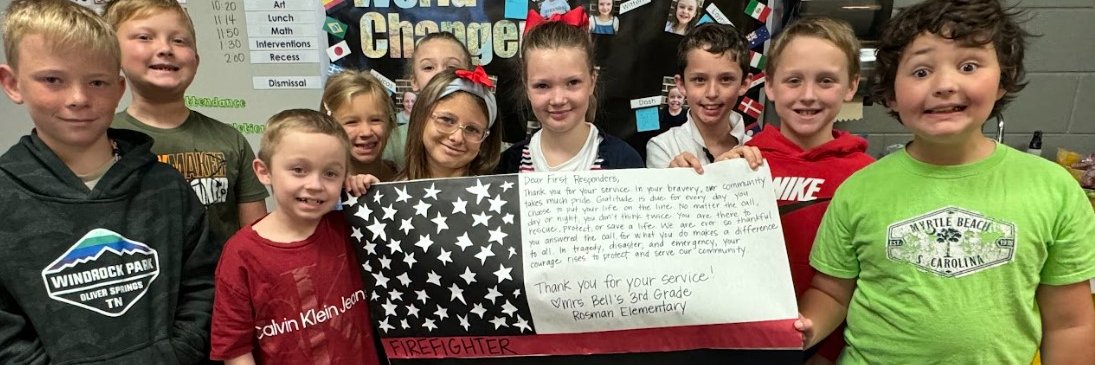 10:20
11:14
11:50
1:30
2:00
Art
Lunch
Math
Interventions
Recess
Dismissal
Attendance
World
Changer
Dash
MAKER
WINDROCK PARK
OLIVER SPRINGS
TN
Calvin Klein Jeans
Dear First Responders,
Thank you for your service. In your bravery, our community
takes much pride. Gratitude is due for every day you
choose to put your life on the line. No matter the call,
day or night, you don't think twice. You are there to
rescue, protect, or save a life. We are ever so thankful
you answered the call, for what you do makes a difference
to all. In tragedy, disaster, and emergency, your
courage rises to protect and serve our community.
Thank you for your service!
♡Mrs. Bell's 3rd Grade
Rosman Elementary
FIREFIGHTER
NIKE
EST.
MYRTLE BEACH
S. CAROLINA